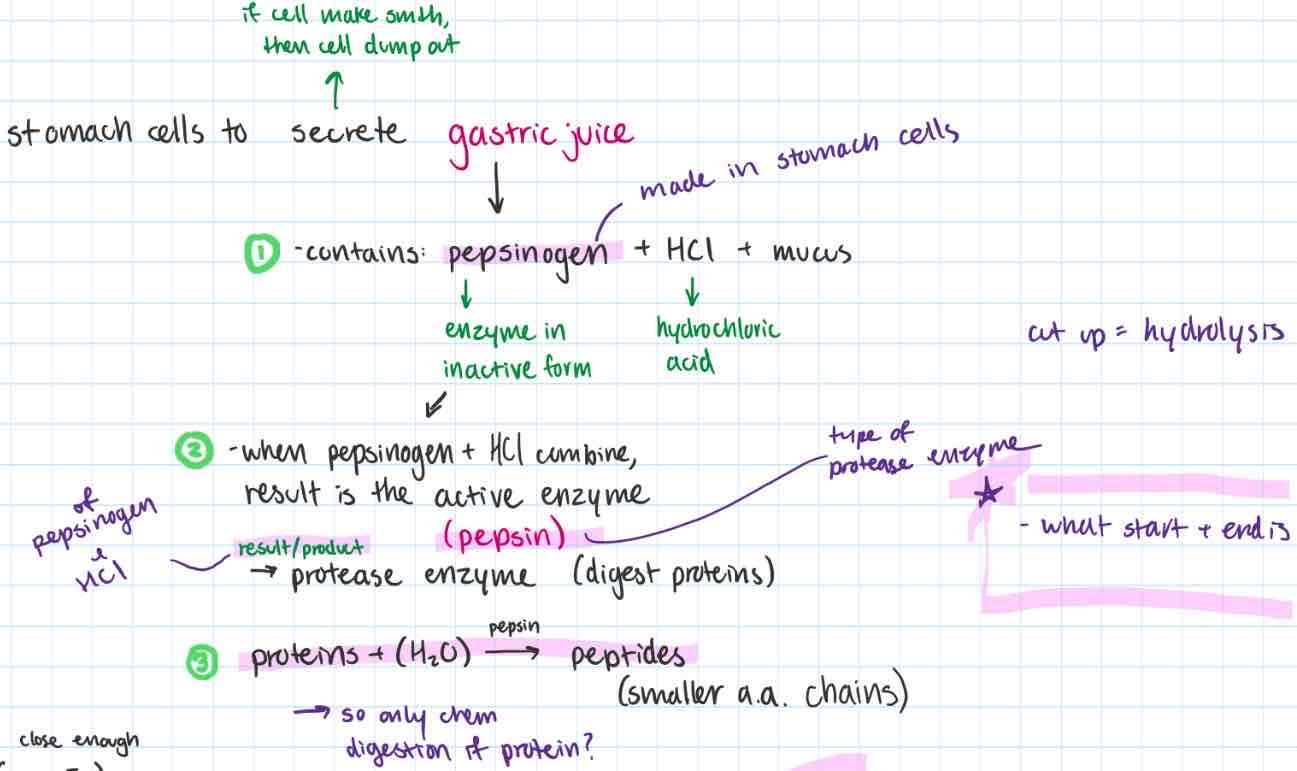 if cell make smth,
then cell dump out
stomach cells to secrete gastric juice
made in stomach cells
① -contains: pepsinogen + HCl + mucus
enzyme in
inactive form
hydrochloric
acid
cut up = hydrolysis
② -when pepsinogen + HCl combine,
result is the active enzyme
(pepsin)
type of
protease enzyme
of
pepsinogen
&
HCl
result/product
→ protease enzyme (digest proteins)
★
- what start + end is
③ proteins + (H₂O) pepsin → peptides
(smaller a.a. chains)
→ so only chem
digestion if protein?
close enough